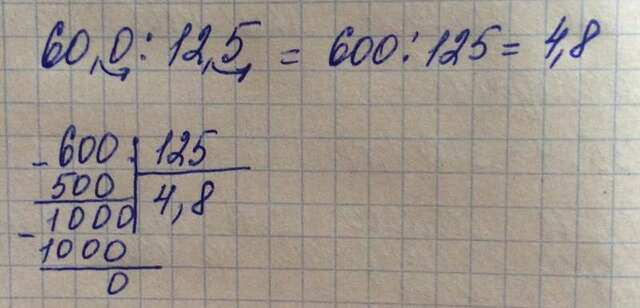 60,0 : 12,5 = 600 : 125 = 4,8
- 600 | 125
500 | 4,8
1000
- 1000
0